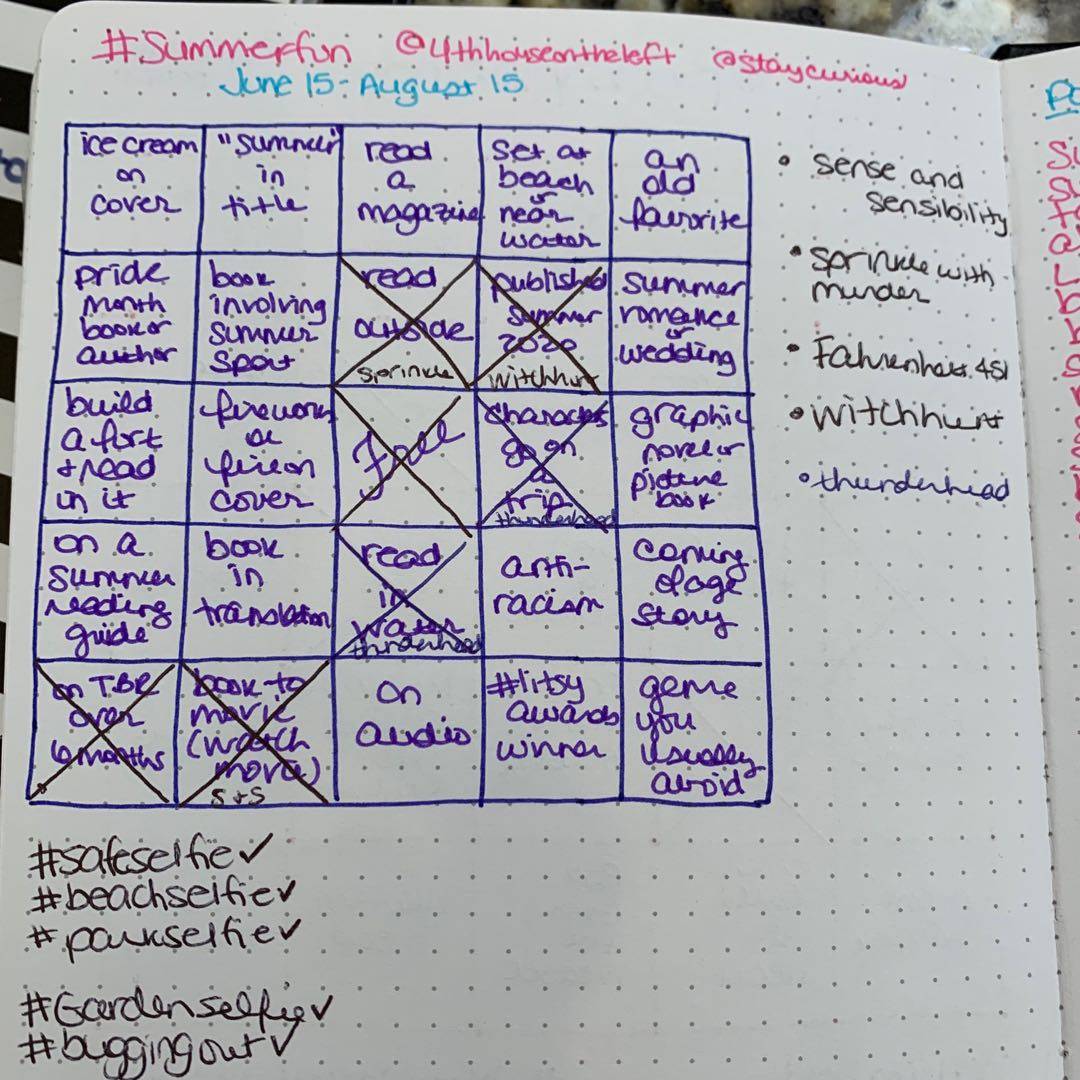 #Summerfun @4thhouseontheleft @staycurious
June 15 - August 15
ice cream
on
cover
"summer"
in
title
read
a
magazine
set at
beach
or
near
water
an
old
favorite
pride
month
book or
author
book
involving
summer
sport
read
outside
sprinkle
published
summer
2020
witchhunt
summer
romance
or
wedding
build
a fort
+ read
in it
firework
or
fire on
cover
free
character
go on
a
trip
thunderhead
graphic
novel or
picture
book
on a
summer
reading
guide
book
in
translation
read
in
water
thunderhead
anti-
racism
coming
of age
story
on TBR
over
6 months
book-to
movie
(watch
movie)
S+S
on
audio
#litsy
awards
winner
genre
you
usually
avoid
• sense and
sensibility
• sprinkle with
murder
• Fahrenheit 451
• witchhunt
• thunderhead
#safeselfie✓
#beachselfie✓
#parkselfie✓
#Gardenselfie✓
#buggingout✓